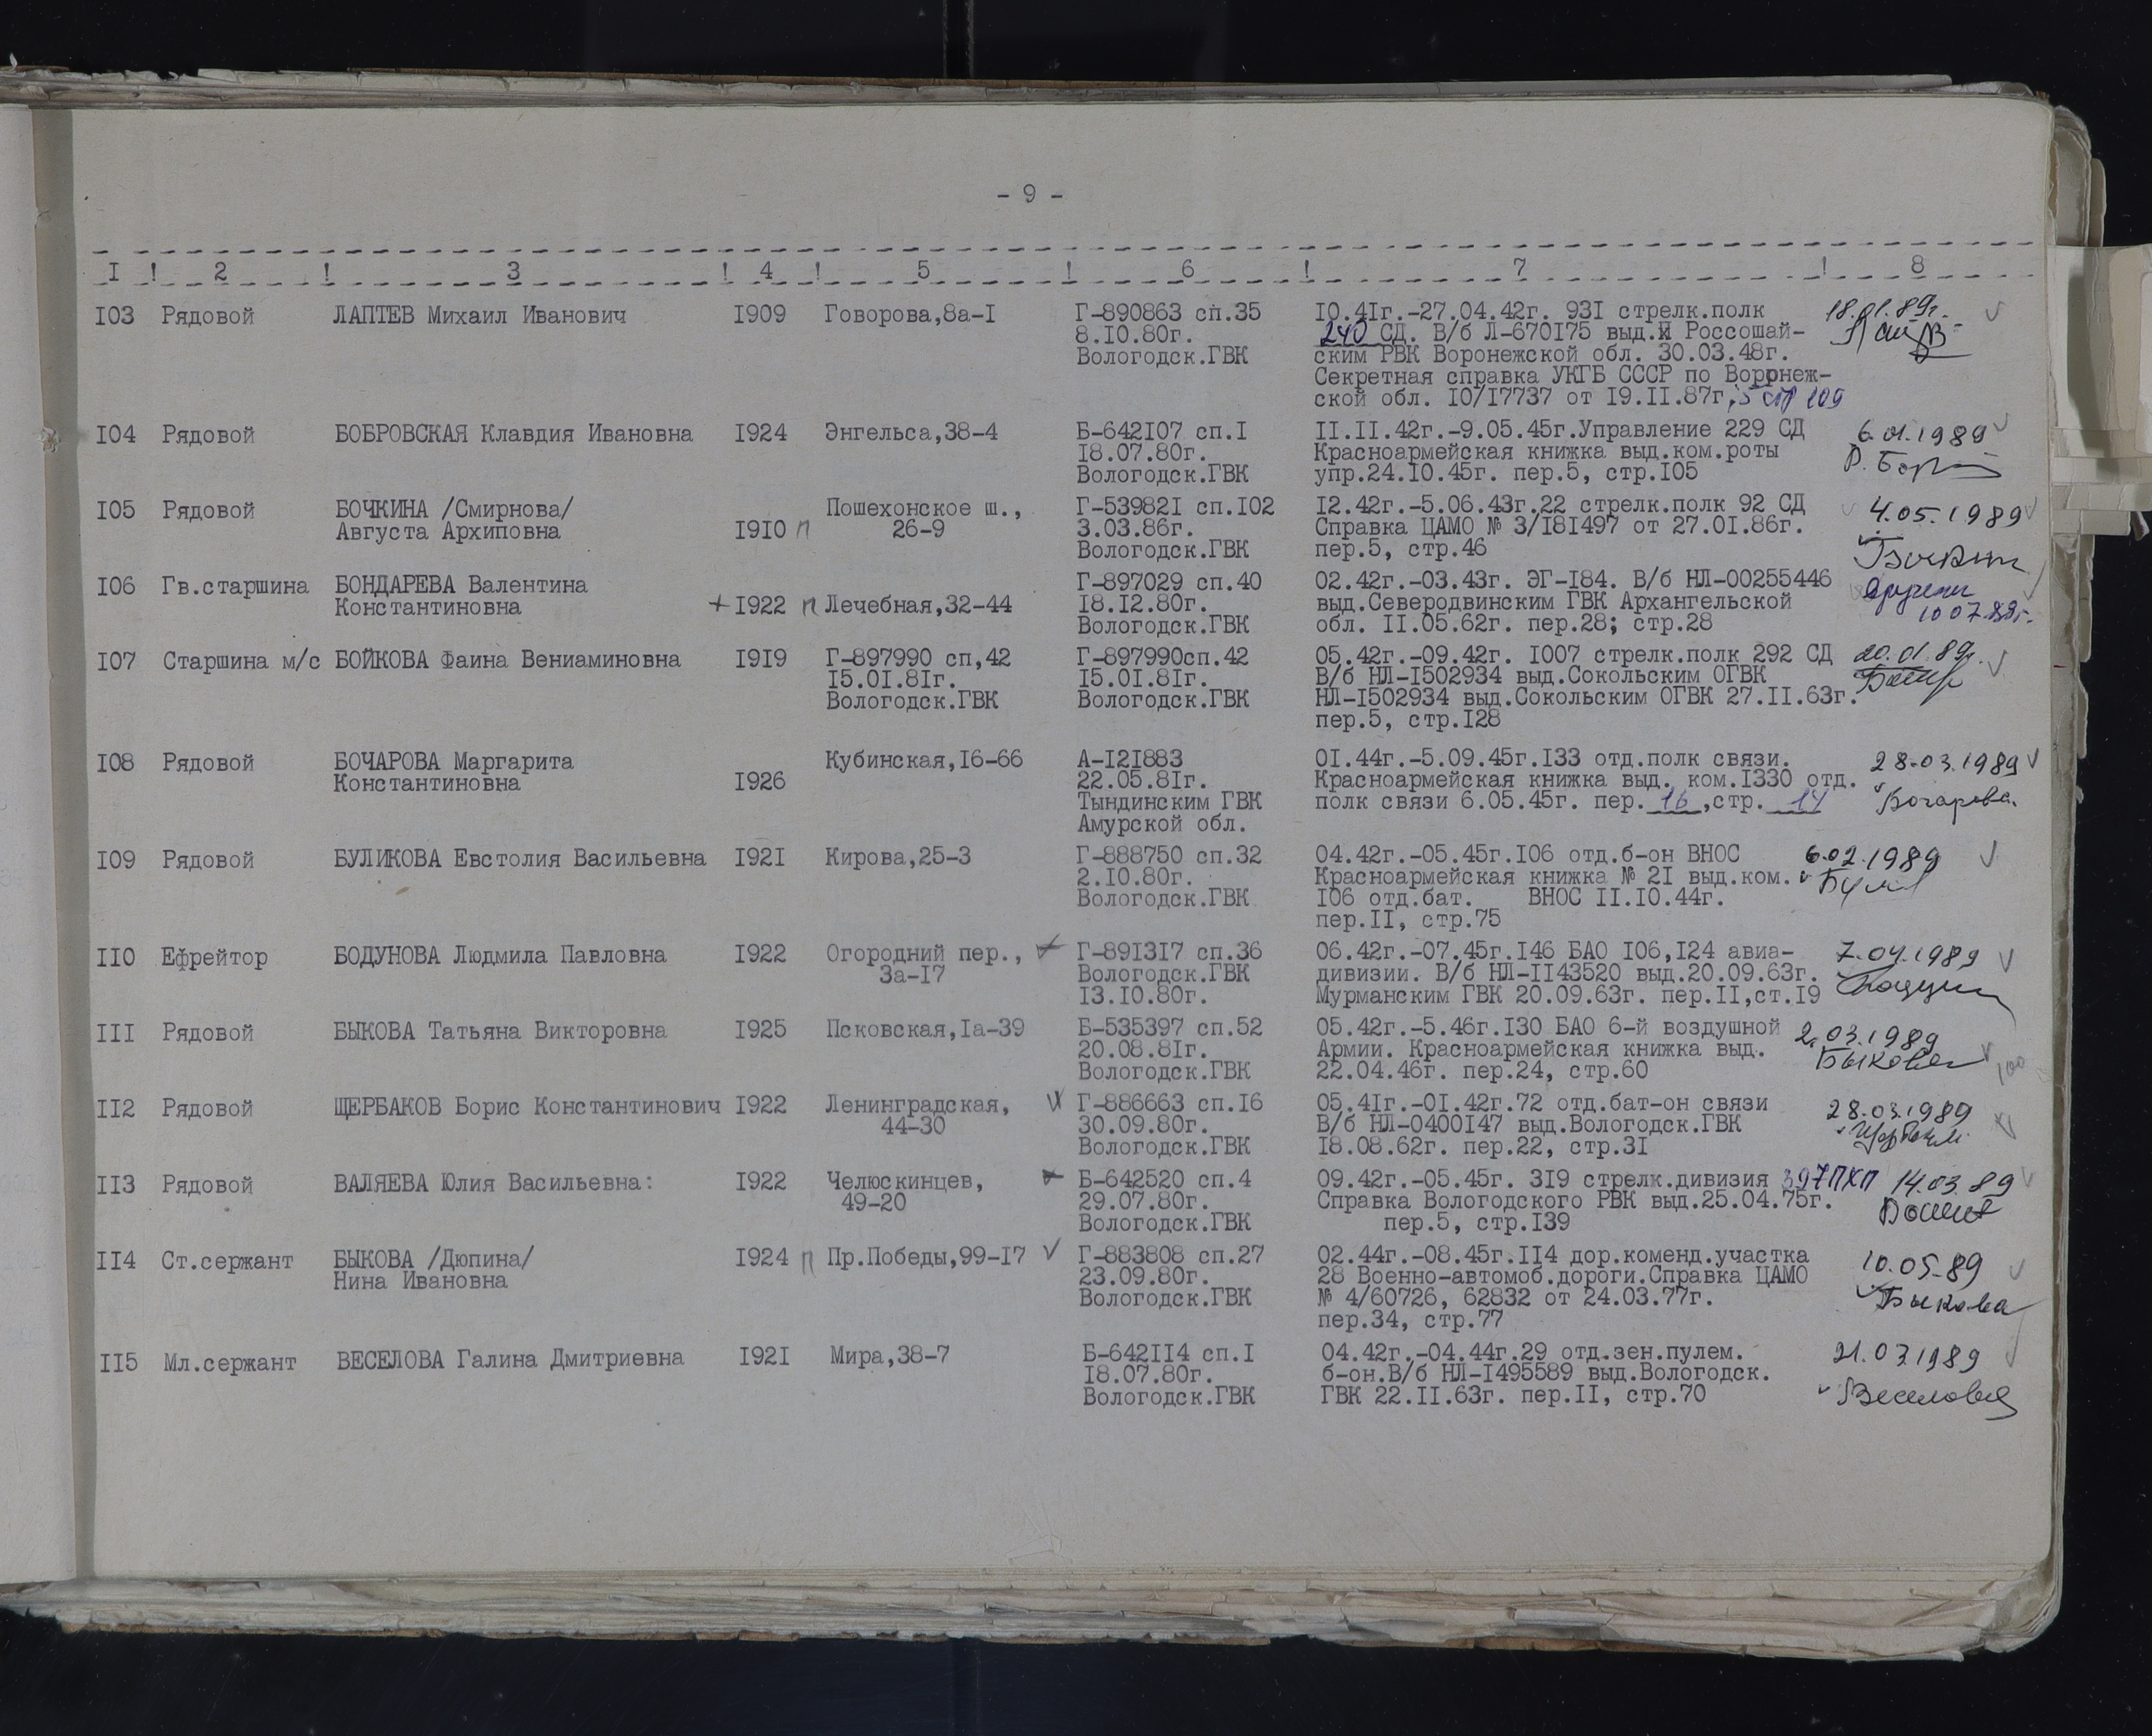 - 9 -
I ! 2 ! 3 ! 4 ! 5 ! 6 ! 7 ! 8
I03 Рядовой ЛАПТЕВ Михаил Иванович I909 Говорова,8а-I Г-890863 сп.35 I0.4Iг.-27.04.42г. 93I стрелк.полк 18.01.89г.
8.I0.80г. 240 СД. В/б Л-670I75 выд.И Россошай-
Вологодск.ГВК ским РВК Воронежской обл. 30.03.48г.
Секретная справка УКГБ СССР по Воронеж-
ской обл. I0/I7737 от I9.II.87г,5 стр 109
I04 Рядовой БОБРОВСКАЯ Клавдия Ивановна I924 Энгельса,38-4 Б-642I07 сп.I II.II.42г.-9.05.45г.Управление 229 СД 6.01.1989
I8.07.80г. Красноармейская книжка выд.ком.роты
Вологодск.ГВК упр.24.I0.45г. пер.5, стр.I05
I05 Рядовой БОЧКИНА /Смирнова/ Пошехонское ш., Г-53982I сп.I02 I2.42г.-5.06.43г.22 стрелк.полк 92 СД 4.05.1989
Августа Архиповна I9I0 п 26-9 3.03.86г. Справка ЦАМО № 3/I8I497 от 27.0I.86г.
Вологодск.ГВК пер.5, стр.46
I06 Гв.старшина БОНДАРЕВА Валентина Г-897029 сп.40 02.42г.-03.43г. ЭГ-I84. В/б НЛ-00255446
Константиновна + I922 п Лечебная,32-44 I8.I2.80г. выд.Северодвинским ГВК Архангельской 10 07.89г.
Вологодск.ГВК обл. II.05.62г. пер.28; стр.28
I07 Старшина м/с БОЙКОВА Фаина Вениаминовна I9I9 Г-897990 сп,42 Г-897990сп.42 05.42г.-09.42г. I007 стрелк.полк 292 СД 20.01.89г.
I5.0I.8Iг. I5.0I.8Iг. В/б НЛ-I502934 выд.Сокольским ОГВК
Вологодск.ГВК Вологодск.ГВК НЛ-I502934 выд.Сокольским ОГВК 27.II.63г.
пер.5, стр.I28
I08 Рядовой БОЧАРОВА Маргарита Кубинская,I6-66 А-I2I883 0I.44г.-5.09.45г.I33 отд.полк связи. 28.03.1989
Константиновна I926 22.05.8Iг. Красноармейская книжка выд. ком.I330 отд.
Тындинским ГВК полк связи 6.05.45г. пер. 16 ,стр. 14 Бочарова.
Амурской обл.
I09 Рядовой БУЛИКОВА Евстолия Васильевна I92I Кирова,25-3 Г-888750 сп.32 04.42г.-05.45г.I06 отд.б-он ВНОС 6.02.1989
2.I0.80г. Красноармейская книжка № 2I выд.ком.
Вологодск.ГВК I06 отд.бат. ВНОС II.I0.44г.
пер.II, стр.75
II0 Ефрейтор БОДУНОВА Людмила Павловна I922 Огородний пер., Г-89I3I7 сп.36 06.42г.-07.45г.I46 БАО I06,I24 авиа- 7.04.1989
3а-I7 Вологодск.ГВК дивизии. В/б НЛ-II43520 выд.20.09.63г.
I3.I0.80г. Мурманским ГВК 20.09.63г. пер.II,ст.I9
III Рядовой БЫКОВА Татьяна Викторовна I925 Псковская,Iа-39 Б-535397 сп.52 05.42г.-5.46г.I30 БАО 6-й воздушной 2.03.1989
20.08.8Iг. Армии. Красноармейская книжка выд. Быкова 100
Вологодск.ГВК 22.04.46г. пер.24, стр.60
II2 Рядовой ЩЕРБАКОВ Борис Константинович I922 Ленинградская, Г-886663 сп.I6 05.4Iг.-0I.42г.72 отд.бат-он связи 28.03.1989
44-30 30.09.80г. В/б НЛ-0400I47 выд.Вологодск.ГВК
Вологодск.ГВК I8.08.62г. пер.22, стр.3I
II3 Рядовой ВАЛЯЕВА Юлия Васильевна: I922 Челюскинцев, Б-642520 сп.4 09.42г.-05.45г. 3I9 стрелк.дивизия 397ПХП 14.03.89
49-20 29.07.80г. Справка Вологодского РВК выд.25.04.75г.
Вологодск.ГВК пер.5, стр.I39
II4 Ст.сержант БЫКОВА /Дюпина/ I924 п Пр.Победы,99-I7 Г-883808 сп.27 02.44г.-08.45г.II4 дор.коменд.участка 10.05-89
Нина Ивановна 23.09.80г. 28 Военно-автомоб.дороги.Справка ЦАМО
Вологодск.ГВК № 4/60726, 62832 от 24.03.77г. Быкова
пер.34, стр.77
II5 Мл.сержант ВЕСЕЛОВА Галина Дмитриевна I92I Мира,38-7 Б-642II4 сп.I 04.42г.-04.44г.29 отд.зен.пулем. 21.03.1989
I8.07.80г. б-он.В/б НЛ-I495589 выд.Вологодск.
Вологодск.ГВК ГВК 22.II.63г. пер.II, стр.70 Веселова